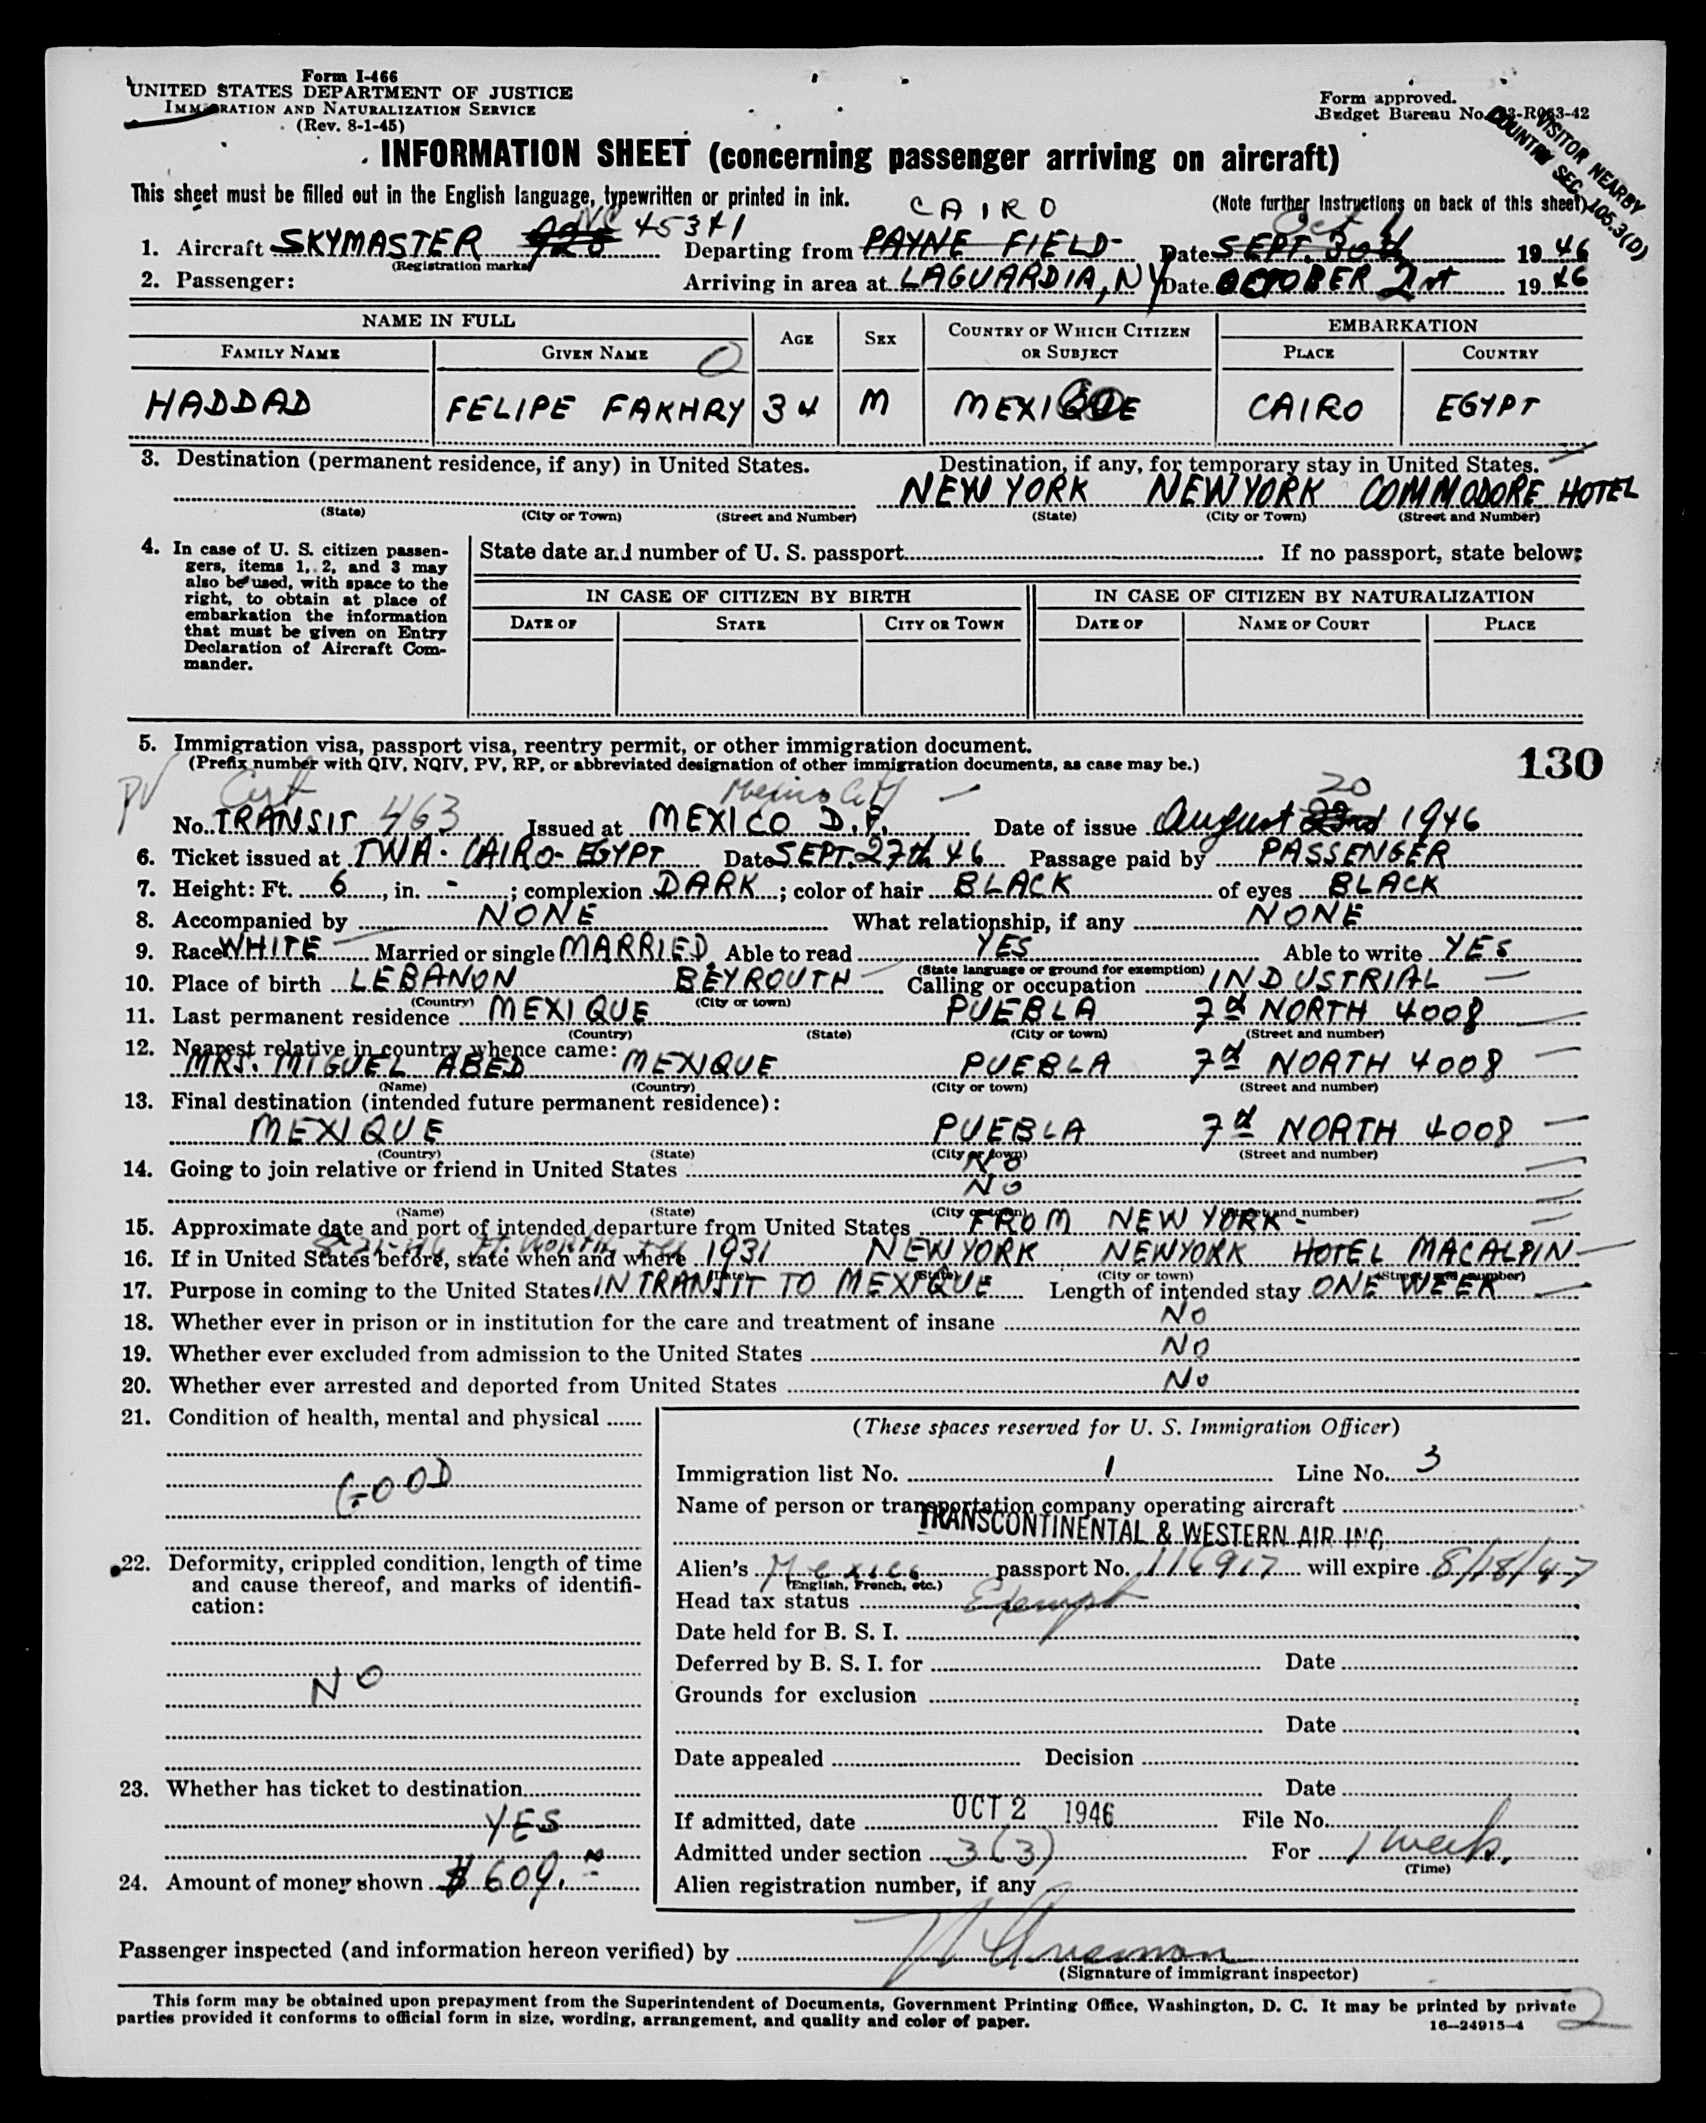 Form I-466
UNITED STATES DEPARTMENT OF JUSTICE
IMMIGRATION AND NATURALIZATION SERVICE
(Rev. 8-1-45)
Form approved.
Budget Bureau No. 43-R063-42
VISITOR NEARBY
COUNTRY SEC. 105.3(D)
INFORMATION SHEET (concerning passenger arriving on aircraft)
This sheet must be filled out in the English language, typewritten or printed in ink.
(Note further instructions on back of this sheet)
NC 45341 CAIRO Oct 1
1. Aircraft SKYMASTER Departing from PAYNE FIELD Date SEPT. 30th 1946
(Registration marks)
2. Passenger: Arriving in area at LAGUARDIA, NY Date OCTOBER 2st 1946
NAME IN FULL AGE SEX COUNTRY OF WHICH CITIZEN OR SUBJECT EMBARKATION
FAMILY NAME GIVEN NAME PLACE COUNTRY
HADDAD FELIPE FAKHRY 34 M MEXIQUE CAIRO EGYPT
3. Destination (permanent residence, if any) in United States. Destination, if any, for temporary stay in United States.
NEW YORK NEW YORK COMMODORE HOTEL
(State) (City or Town) (Street and Number) (State) (City or Town) (Street and Number)
4. In case of U. S. citizen passen-
gers, items 1, 2, and 3 may
also be used, with space to the
right, to obtain at place of
embarkation the information
that must be given on Entry
Declaration of Aircraft Com-
mander.
State date and number of U. S. passport If no passport, state below:
IN CASE OF CITIZEN BY BIRTH IN CASE OF CITIZEN BY NATURALIZATION
DATE OF STATE CITY OR TOWN DATE OF NAME OF COURT PLACE
5. Immigration visa, passport visa, reentry permit, or other immigration document.
(Prefix number with QIV, NQIV, PV, RP, or abbreviated designation of other immigration documents, as case may be.)
130
PV Cert Mexico City 20
No. TRANSIT 463 Issued at MEXICO D.F. Date of issue August 23rd 1946
6. Ticket issued at TWA - CAIRO - EGYPT Date SEPT. 27th 46 Passage paid by PASSENGER
7. Height: Ft. 6, in. -; complexion DARK; color of hair BLACK of eyes BLACK
8. Accompanied by NONE What relationship, if any NONE
9. Race WHITE Married or single MARRIED Able to read YES Able to write YES
(State language or ground for exemption)
10. Place of birth LEBANON BEYROUTH Calling or occupation INDUSTRIAL
(Country) (City or town)
11. Last permanent residence MEXIQUE PUEBLA 7d NORTH 4008
(Country) (State) (City or town) (Street and number)
12. Nearest relative in country whence came:
MRS. MIGUEL ABED MEXIQUE PUEBLA 7d NORTH 4008
(Name) (Country) (City or town) (Street and number)
13. Final destination (intended future permanent residence):
MEXIQUE PUEBLA 7d NORTH 4008
(Country) (State) (City or town) (Street and number)
14. Going to join relative or friend in United States NO
NO
(Name) (State) (City or town) (Street and number)
15. Approximate date and port of intended departure from United States FROM NEW YORK -
8-21-46 Ft. Worth Tex
16. If in United States before, state when and where 1931 NEW YORK NEWYORK HOTEL MACALPIN
(Date) (State) (City or town) (Street and number)
17. Purpose in coming to the United States IN TRANSIT TO MEXIQUE Length of intended stay ONE WEEK
18. Whether ever in prison or in institution for the care and treatment of insane NO
19. Whether ever excluded from admission to the United States NO
20. Whether ever arrested and deported from United States No
21. Condition of health, mental and physical
GOOD
22. Deformity, crippled condition, length of time
and cause thereof, and marks of identifi-
cation:
NO
23. Whether has ticket to destination
YES
24. Amount of money shown $ 609.
(These spaces reserved for U. S. Immigration Officer)
Immigration list No. 1 Line No. 3
Name of person or transportation company operating aircraft
TRANSCONTINENTAL & WESTERN AIR INC.
Alien's Mexico passport No. 116917 will expire 8/18/47
(English, French, etc.)
Head tax status Exempt
Date held for B. S. I.
Deferred by B. S. I. for Date
Grounds for exclusion
Date
Date appealed Decision
Date
If admitted, date OCT 2 1946 File No.
Admitted under section 3(3) For 1 week.
(Time)
Alien registration number, if any
Passenger inspected (and information hereon verified) by
(Signature of immigrant inspector)
This form may be obtained upon prepayment from the Superintendent of Documents, Government Printing Office, Washington, D. C. It may be printed by private
parties provided it conforms to official form in size, wording, arrangement, and quality and color of paper.
16—24915-4
2